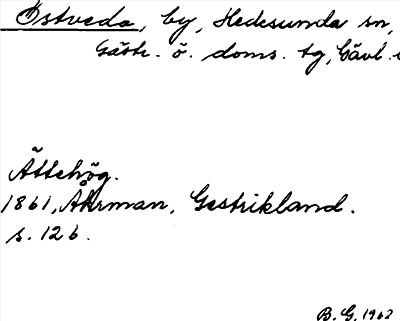 Östveda, by, Hedesunda sn,
Gästr. ö. doms. tg, Gävl.
Ättehög.
1861, Åhrman, Gestrikland.
s. 126.
B. G. 1962